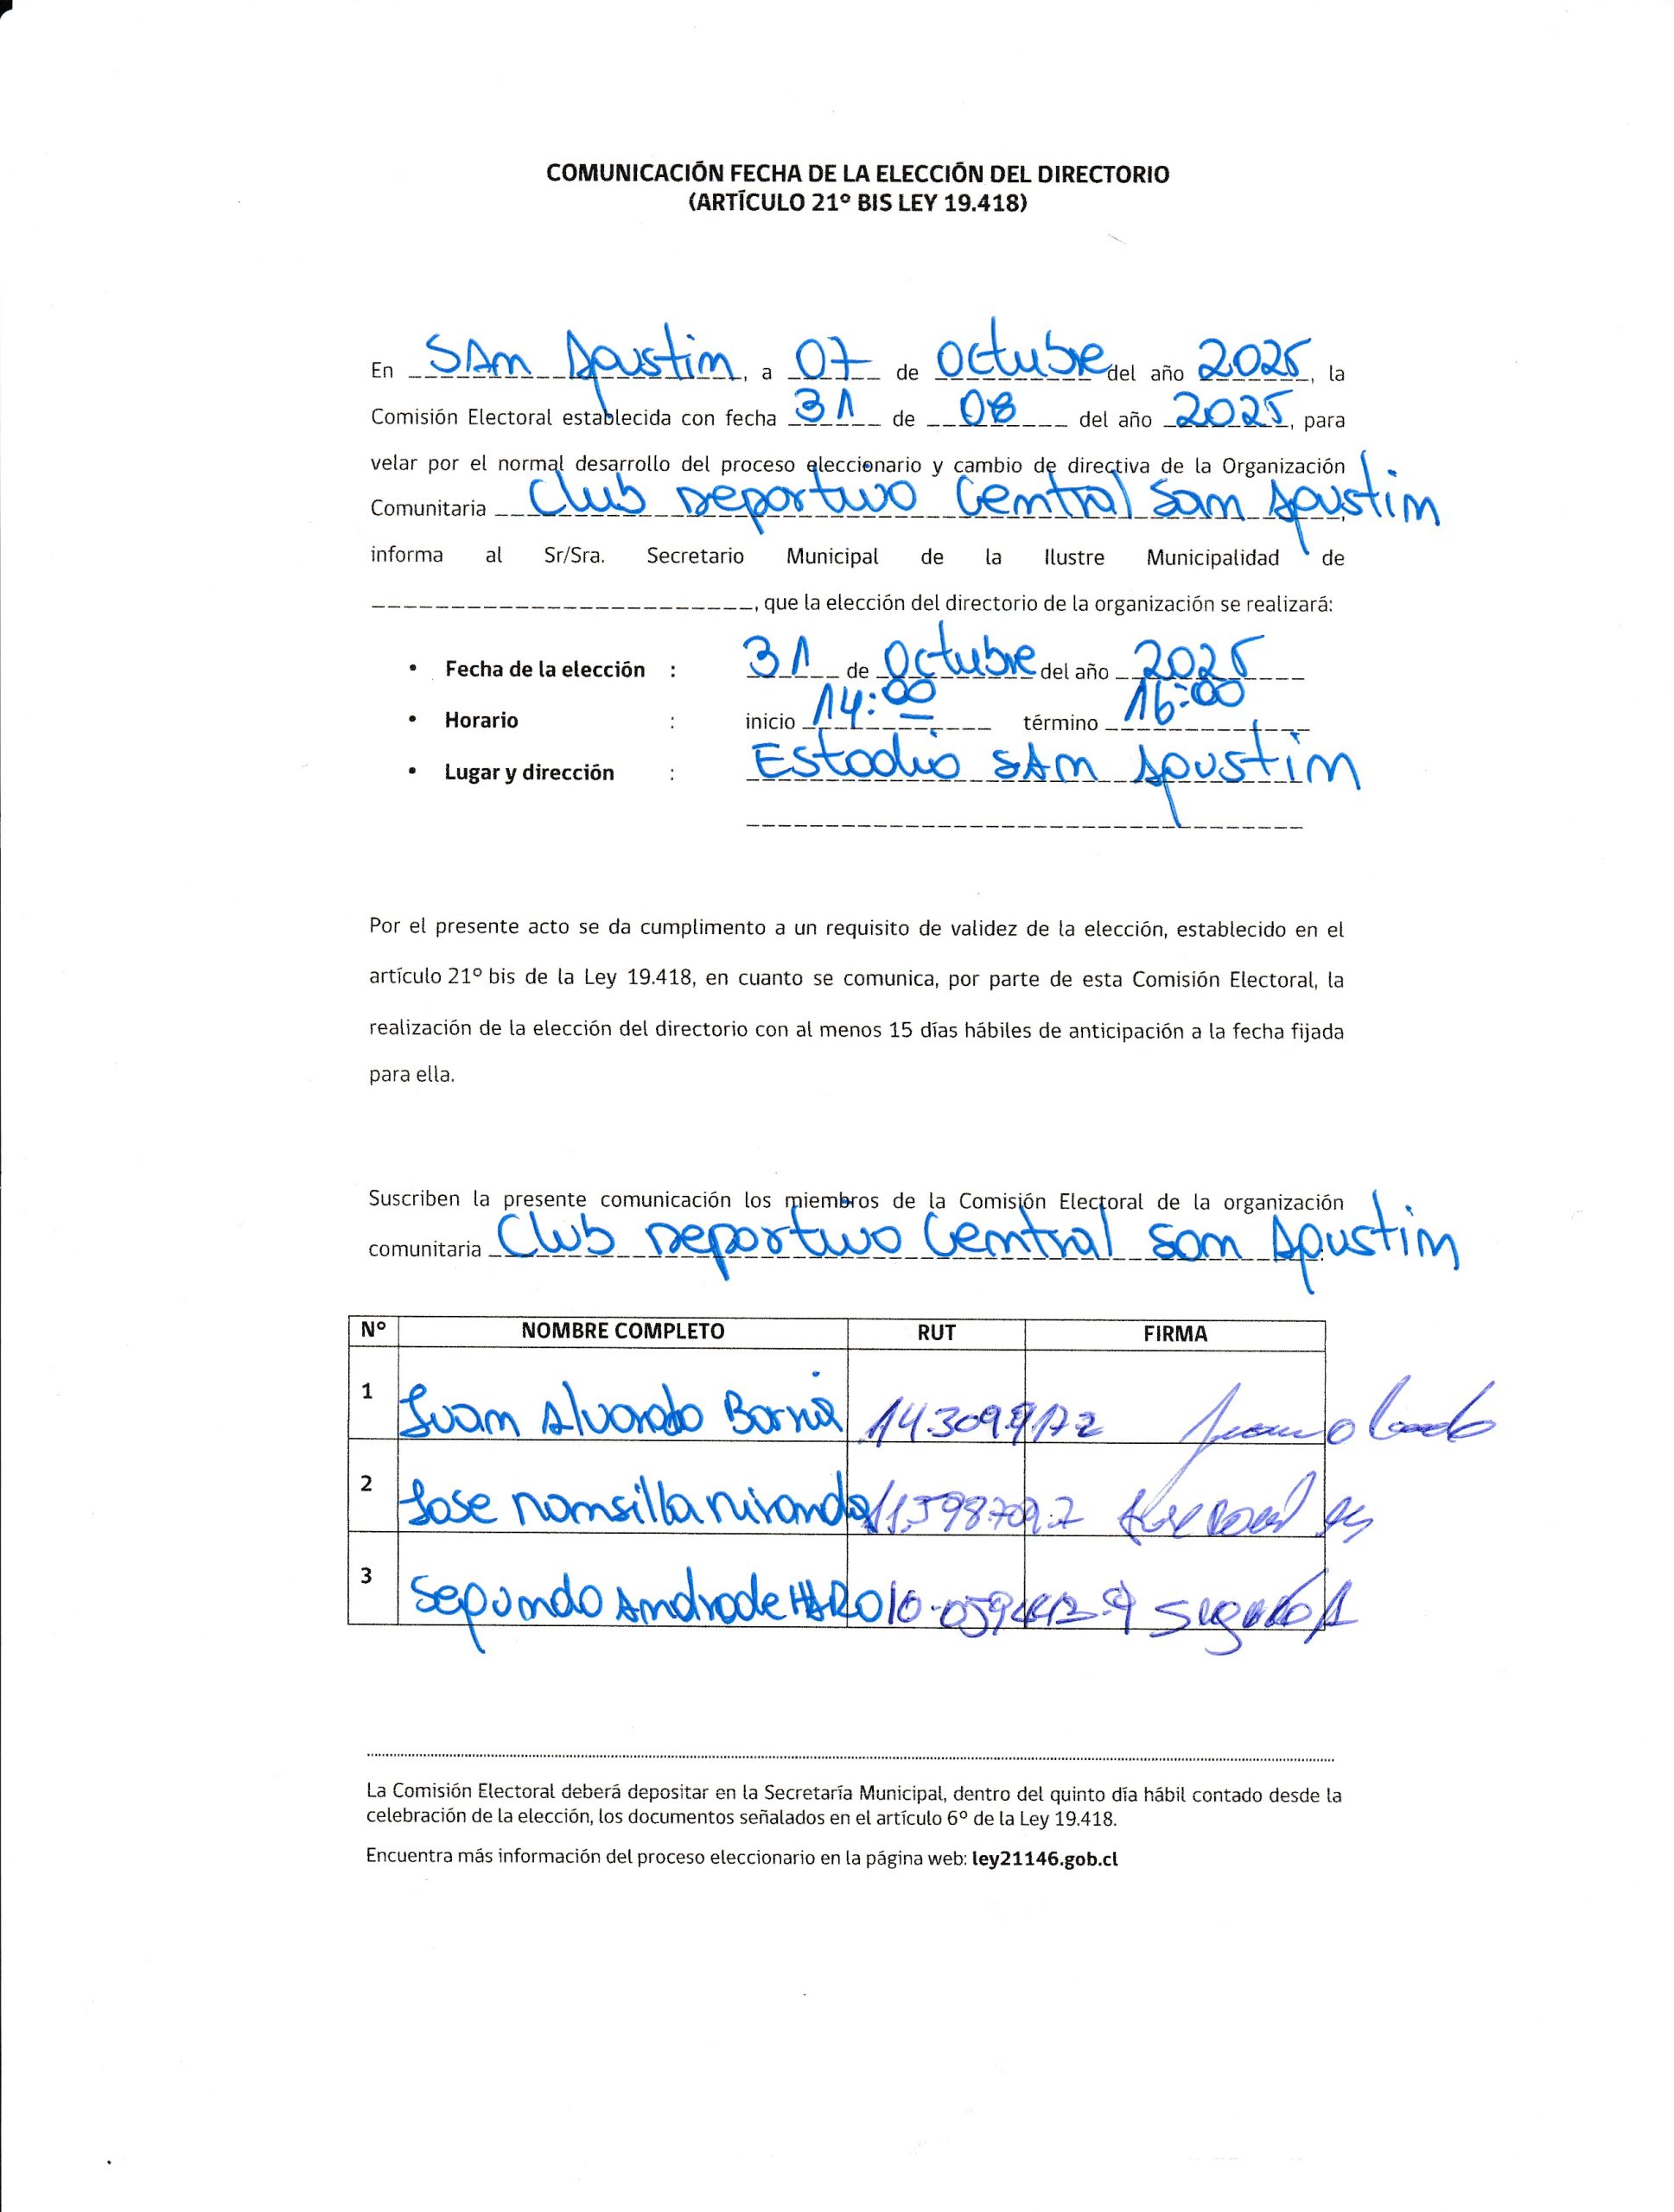 COMUNICACIÓN FECHA DE LA ELECCIÓN DEL DIRECTORIO
(ARTÍCULO 21º BIS LEY 19.418)
En SAn Agustin, a 07 de Octubre del año 2025, la
Comisión Electoral establecida con fecha 31 de 08 del año 2025, para
velar por el normal desarrollo del proceso eleccionario y cambio de directiva de la Organización
Comunitaria Club Deportivo Central San Agustin
informa al Sr/Sra. Secretario Municipal de la Ilustre Municipalidad de
________________________, que la elección del directorio de la organización se realizará:
• Fecha de la elección : 31 de Octubre del año 2025
• Horario : inicio 14:00 término 16:00
• Lugar y dirección : Estadio SAn Agustin
Por el presente acto se da cumplimento a un requisito de validez de la elección, establecido en el
artículo 21º bis de la Ley 19.418, en cuanto se comunica, por parte de esta Comisión Electoral, la
realización de la elección del directorio con al menos 15 días hábiles de anticipación a la fecha fijada
para ella.
Suscriben la presente comunicación los miembros de la Comisión Electoral de la organización
comunitaria Club Deportivo Central San Agustin
Nº NOMBRE COMPLETO RUT FIRMA
1 Juan Alvarado Barria 14.309.917-2
2 Jose Mansilla Miranda 11.598.709.7
3 Segundo Andrade HARO Segundo A
La Comisión Electoral deberá depositar en la Secretaría Municipal, dentro del quinto día hábil contado desde la
celebración de la elección, los documentos señalados en el artículo 6º de la Ley 19.418.
Encuentra más información del proceso eleccionario en la página web: ley21146.gob.cl